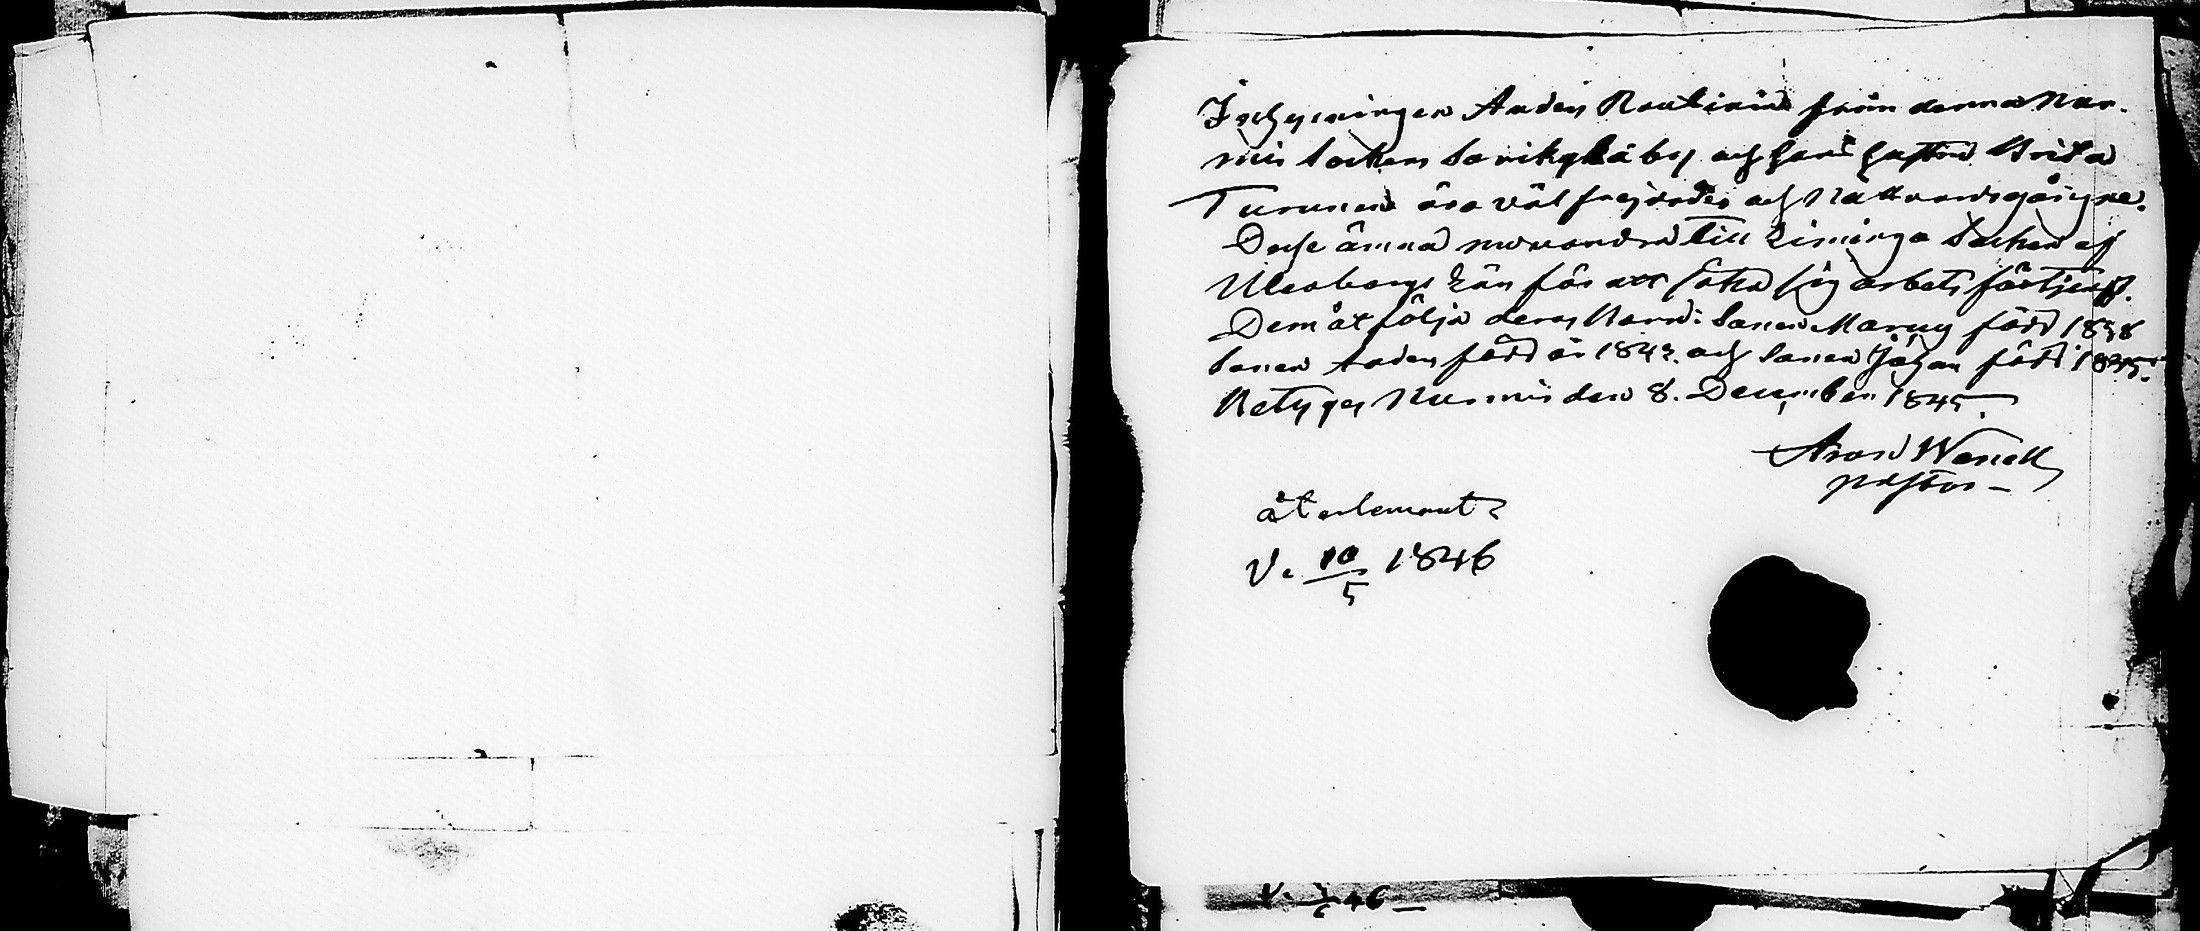 Inhysningen Anders Rautiain från denna Nur-
mis Socken Savikylä by och hans hustru Brita
Turunen äro väl frejdade och Nattvardsgångne.
Desse ämna nu vandra till Liminga Socken af
Uleaborgs Län för att söka sig arbets förtjenst.
Dem åt följa deras Barn: Sonen Magnus född 1838
Sonen Anders född år 1842. och Sonen Johan född 1845.
Betyges Nurmis den 8. December 1845.
Aron Wenell
pastor
återlemnat
V. 10/5 1846
V. 46